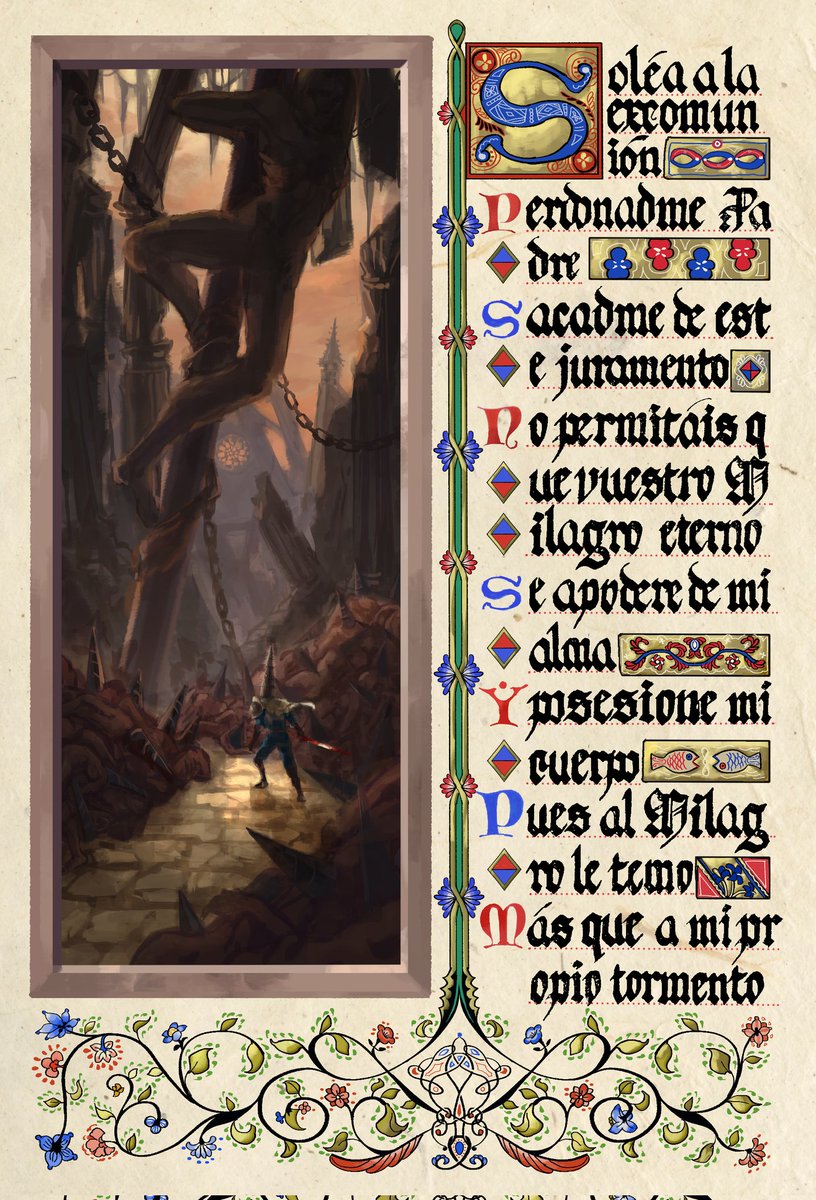 Soléa a la
excomun
ión
Perdonadme Pa
dre
Sacadme de est
e juramento
No permitáis q
ue vuestro M
ilagro eterno
Se apodere de mi
alma
Y posesione mi
cuerpo
Pues al Milag
ro le temo
Más que a mi pr
opio tormento